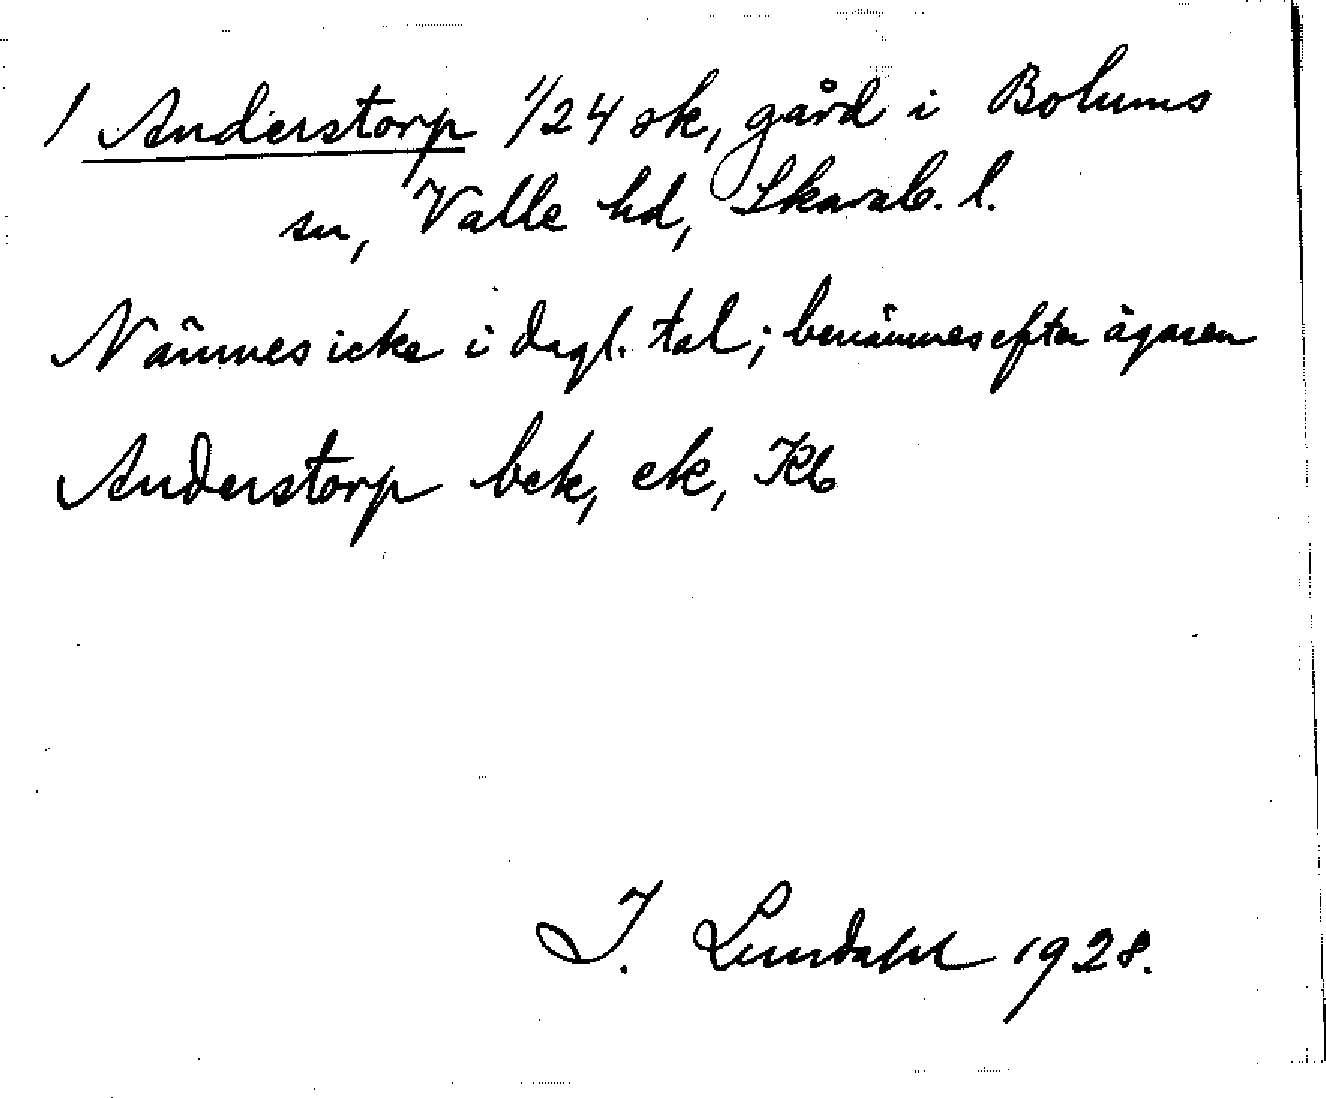 1 Anderstorp 1/24 sk, gård i Bolums
sn, Valle hd, Skarab. l.
Nämnes icke i dagl. tal; benämnes efter ägaren
Anderstorp bek, ek, Kb
I. Lundahl 1928.